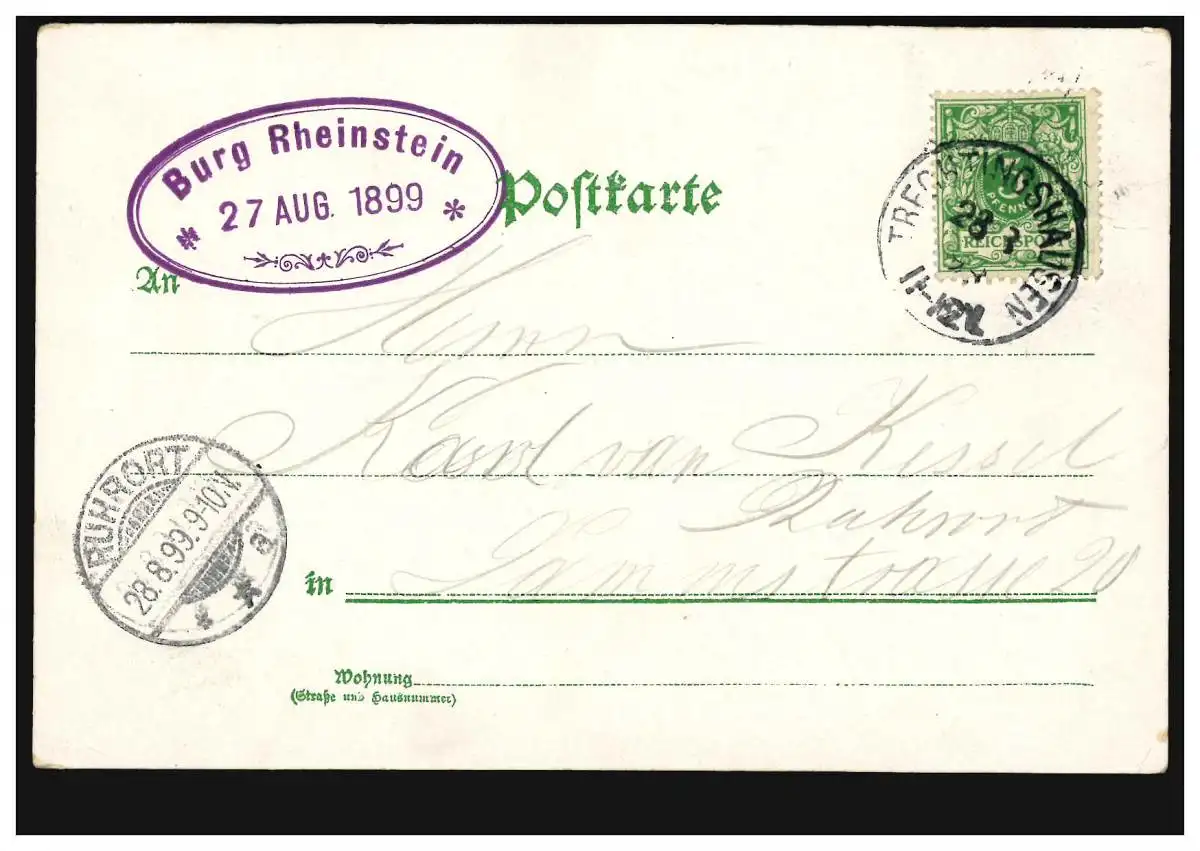 Burg Rheinstein
* 27 AUG. 1899 *
Postkarte
REICHSPOST
TRECHTINGSHAUSEN
28 8
11-12V.
An
Herrn
Karl van Kessel
Ruhrort
in
Dammstrasse 20
RUHRORT
28.8.99.9-10.N.
* * a
Wohnung
(Straße und Hausnummer)